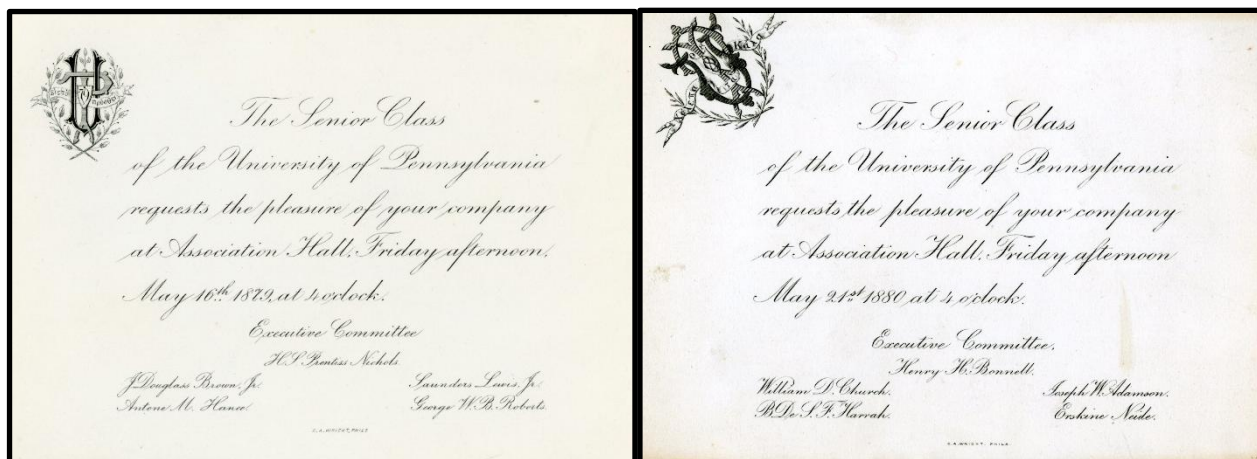 The Senior Class
of the University of Pennsylvania
requests the pleasure of your company
at Association Hall, Friday afternoon,
May 16th 1879, at 4 o'clock.
Executive Committee
H.S. Prentiss Nichols
J. Douglass Brown, Jr. Saunders Lewis, Jr.
M. George W. B. Roberts.
The Senior Class
of the University of Pennsylvania
requests the pleasure of your company
at Association Hall, Friday afternoon
May 21st 1880 at 4 o'clock.
Executive Committee,
Henry H. Bonnell.
William D. Church. Joseph W. Adamson.
B. De S. F. Harrah. Erskine Neide.